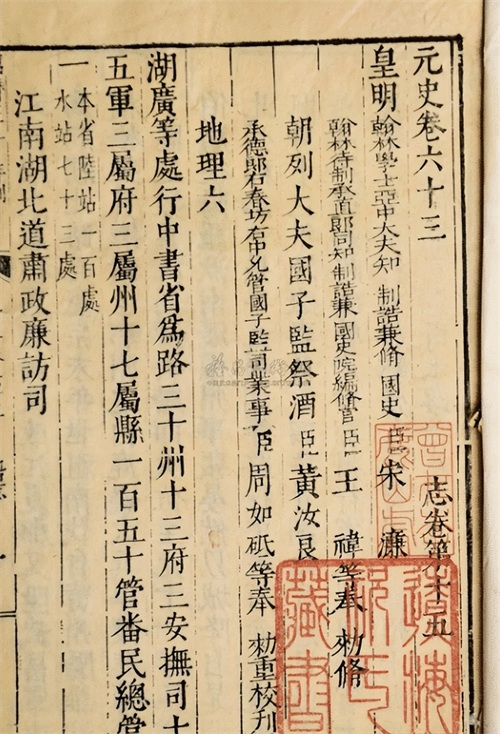 元史卷六十三
志卷第十五
皇明翰林學士亞中大夫知 制誥兼脩 國史臣宋 濂
翰林待制承直郎同知 制誥兼 國史院編脩官臣王 禕等奉 勑脩
朝列大夫國子監祭酒臣黃汝良
承德郎右春坊右中允管國子監司業事臣周如砥等奉 勑重校刊
地理六
湖廣等處行中書省爲路三十州十三府三安撫司十
五軍三屬府三屬州十七屬縣一百五十管番民總管
一
本省陸站一百處
水站七十三處
江南湖北道肅政廉訪司
藏書